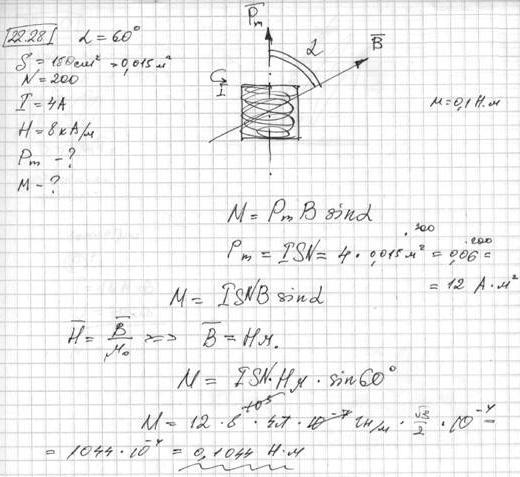 22.28 α = 60°
S = 150 см² = 0,015 м²
N = 200
I = 4 А
H = 8 кА/м
Pm - ?
M - ?
P̅m
α
B̅
I
M = 0,1 Н.м
M = Pm B sin α
Pm = ISN = 4 · 0,015 м² · 200 = 0,06 · 200 =
= 12 А · м²
M = ISNB sin α
H̅ = B̅/μ₀ => B̅ = Hμ₀
M = ISN · Hμ · sin 60°
M = 12 · 8 · 10³ · 4π · 10⁻⁷ Гн/м · √3/2 · 10⁻⁴ =
= 1044 · 10⁻⁴ = 0,1044 Н·м